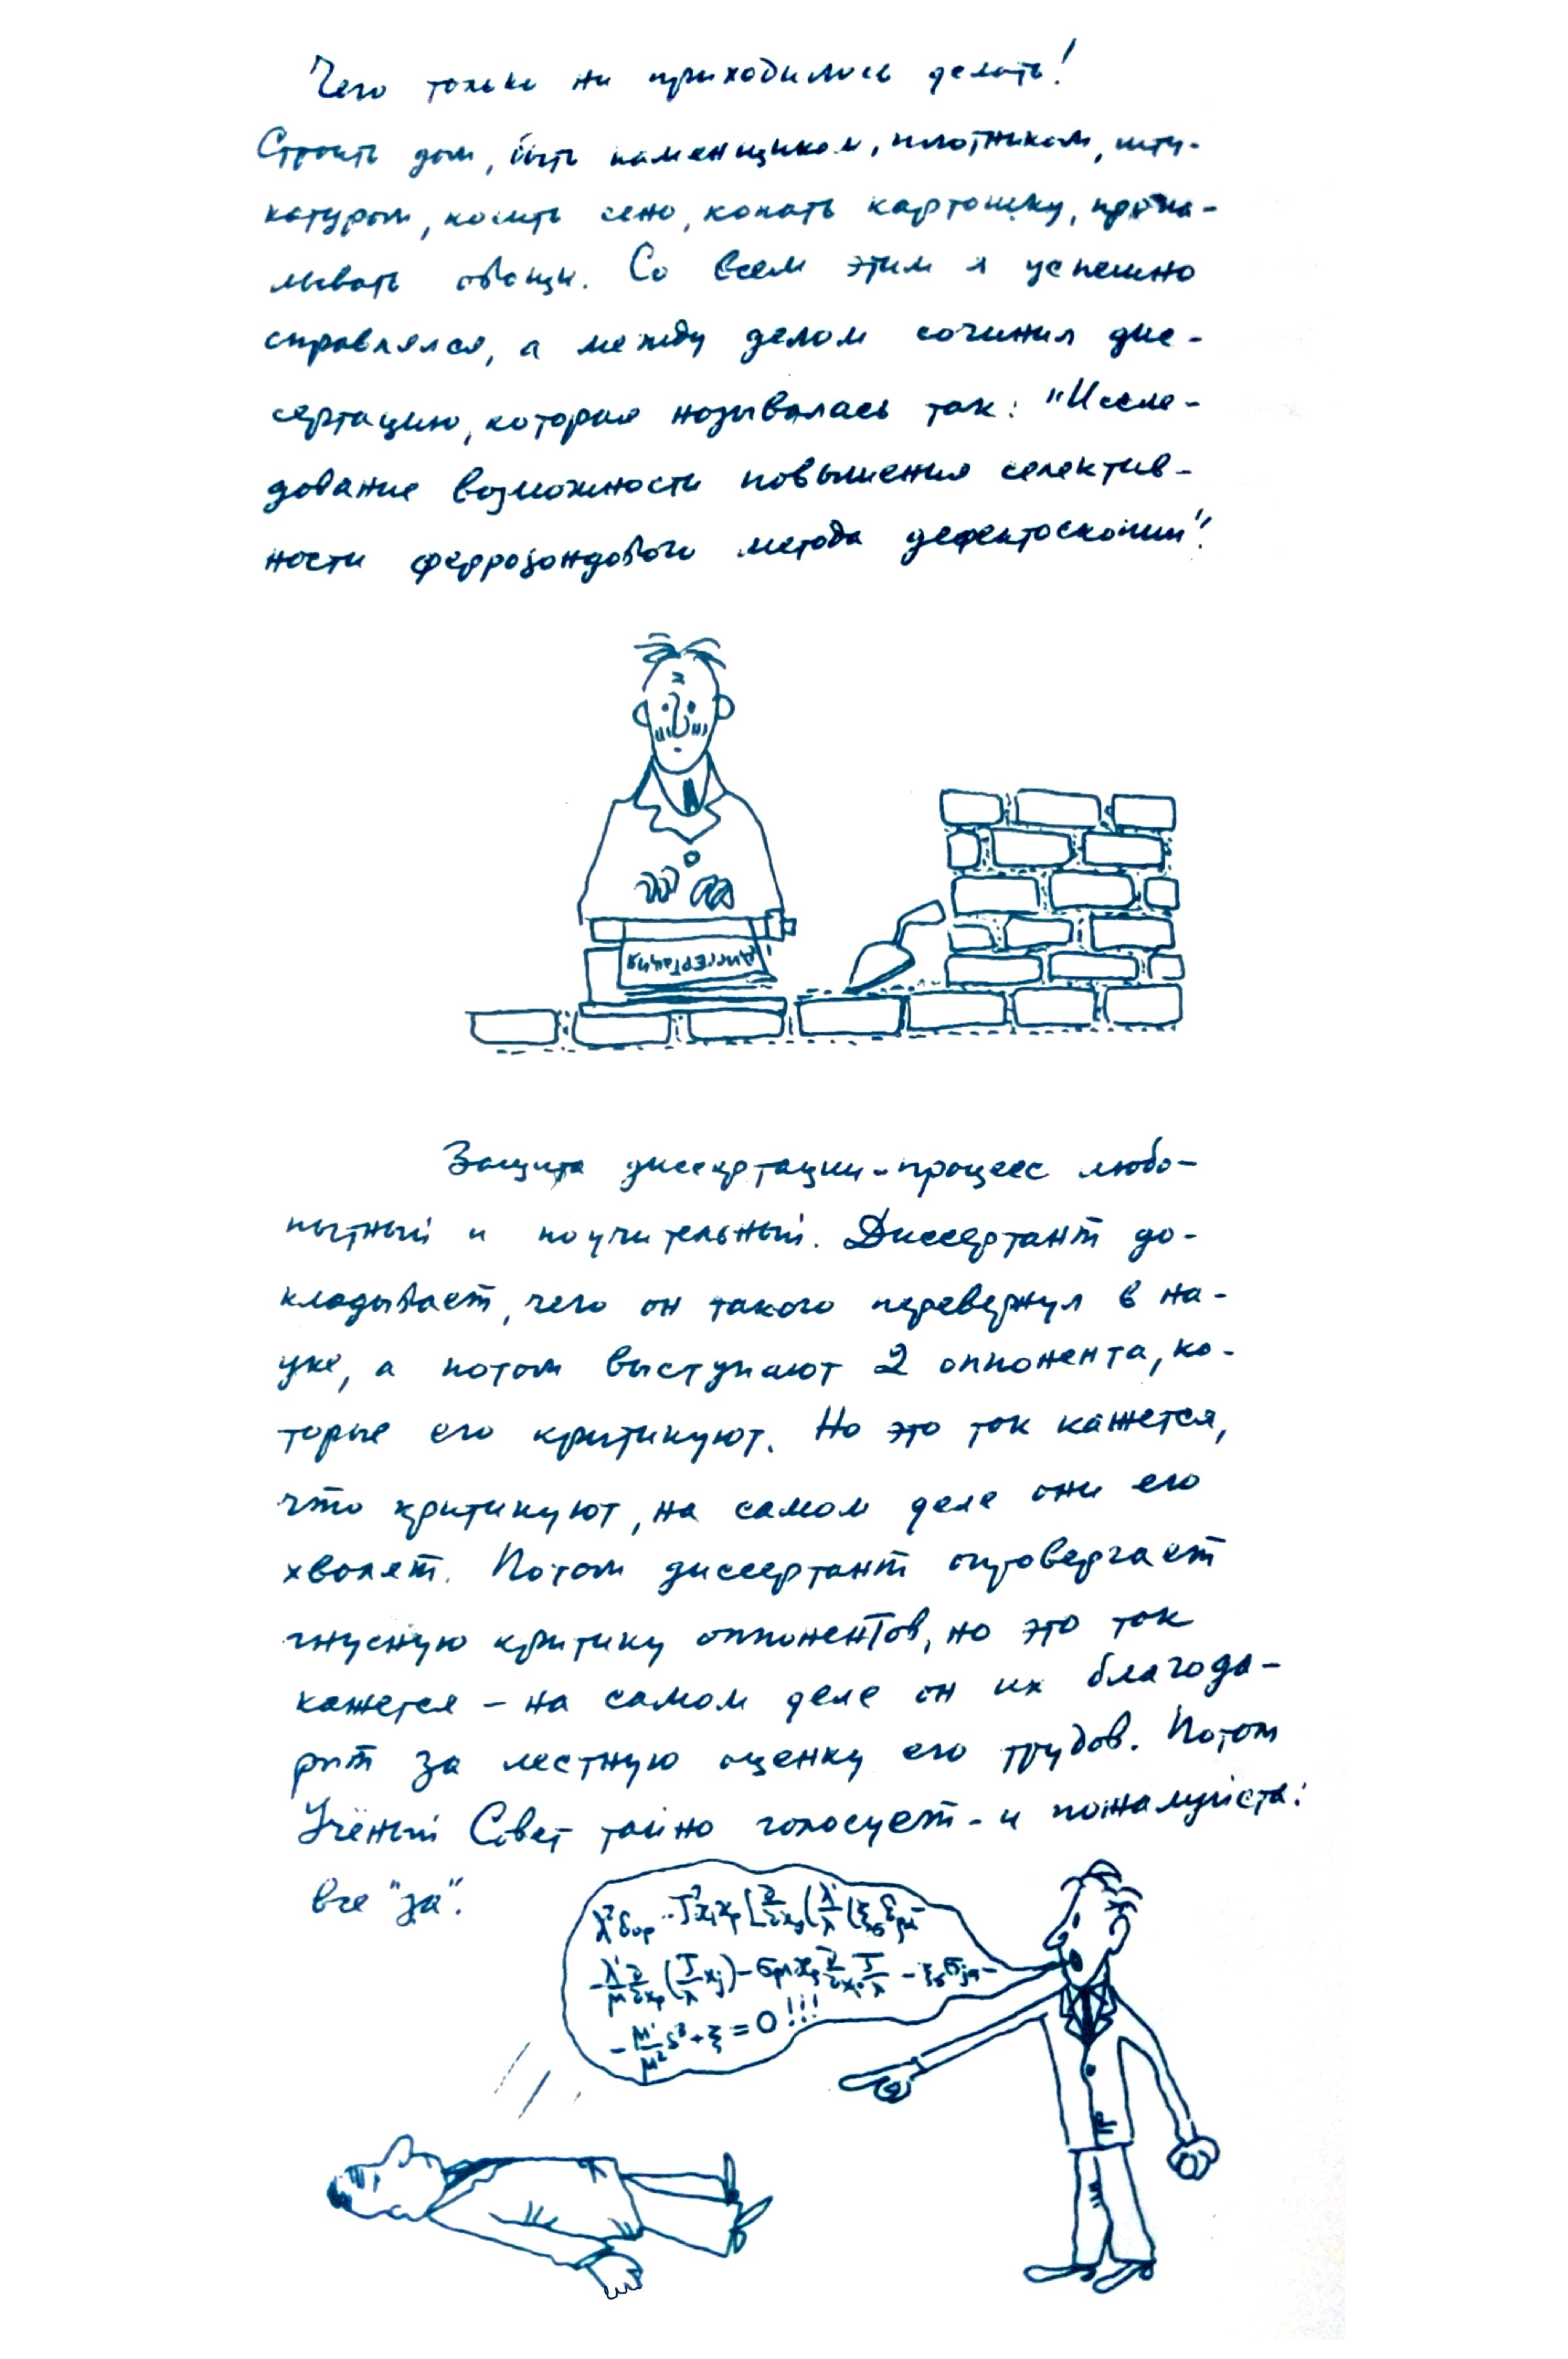 Чего только не приходилось делать!
Строить дом, быть каменщиком, плотником, шту-
катуром, косить сено, копать картошку, пропа-
лывать овощи. Со всем этим я успешно
справлялся, а между делом сочинил дис-
сертацию, которая называлась так: "Иссле-
дование возможности повышения селектив-
ности феррозондового метода дефектоскопии".
Диссертация
Защита диссертации - процесс любо-
пытный и поучительный. Диссертант до-
кладывает, чего он такого перевернул в на-
уке, а потом выступают 2 оппонента, ко-
торые его критикуют. Но это так кажется,
что критикуют, на самом деле они его
хвалят. Потом диссертант опровергает
гнусную критику оппонентов, но это так
кажется - на самом деле он их благода-
рит за лестную оценку его трудов. Потом
Учёный Совет тайно голосует - и пожалуйста:
все "за".
= 0 !!!